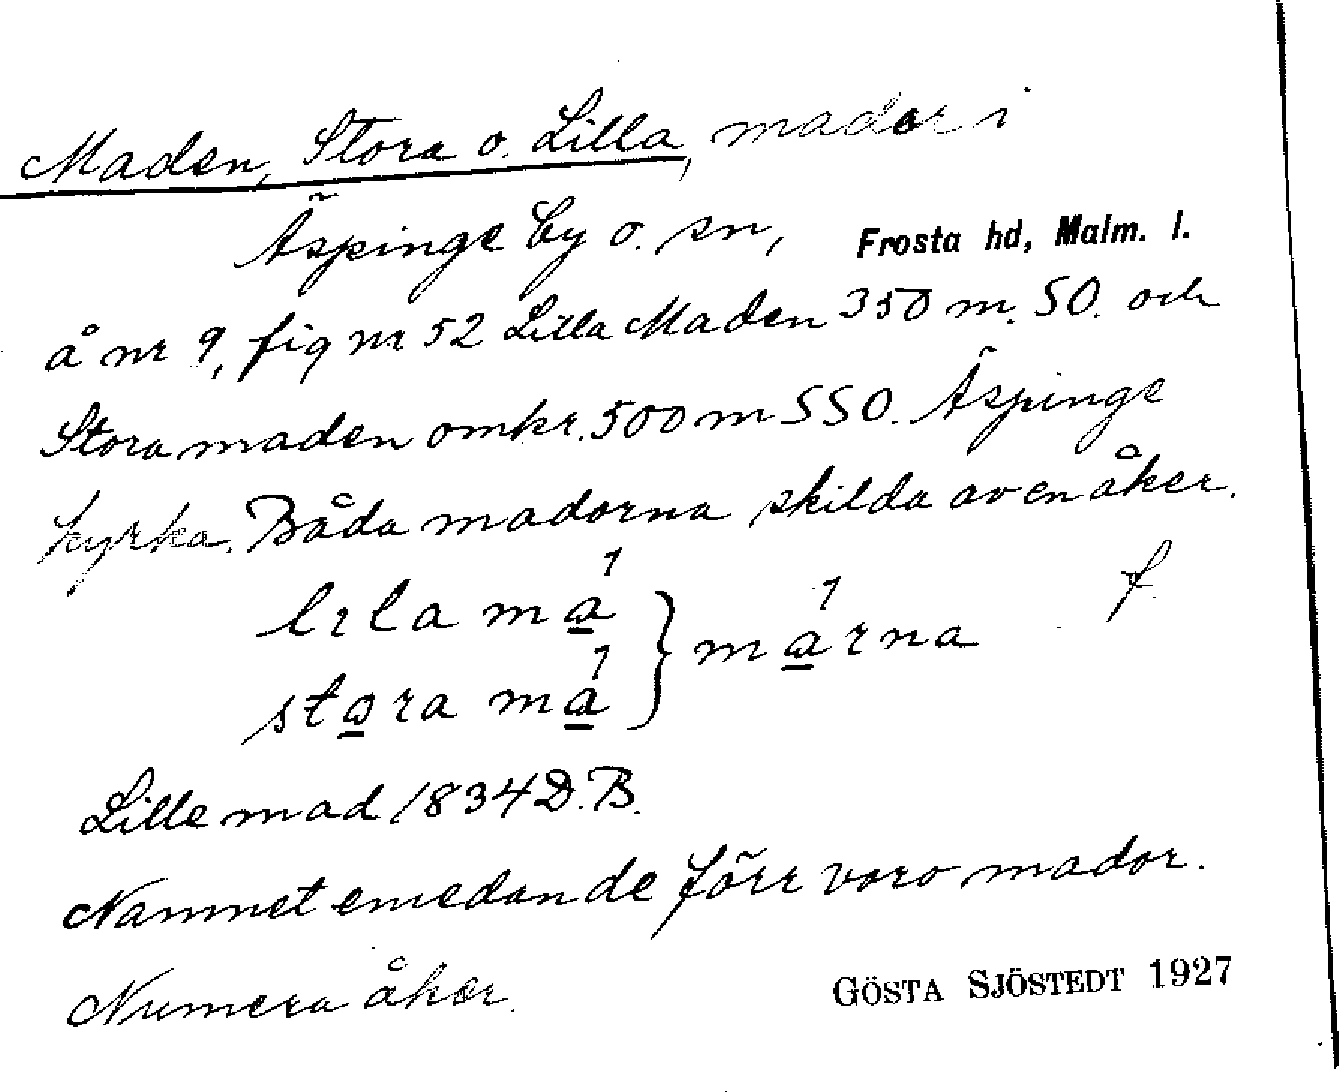 Maden, Stora o. Lilla, mador i
Äspinge by o. sn, Frosta hd, Malm. l.
å nr 9, fig nr 52 Lilla Maden 350 m. SO. och
Stora maden omkr. 500 m SSO. Äspinge
kyrka. Båda madorna skilda av en åker.
lıla má̱ } má̱rna f
sto̱ra má̱
Lille mad 1834 D.B.
Namnet emedan de förr voro mador.
Numera åker.
GÖSTA SJÖSTEDT 1927